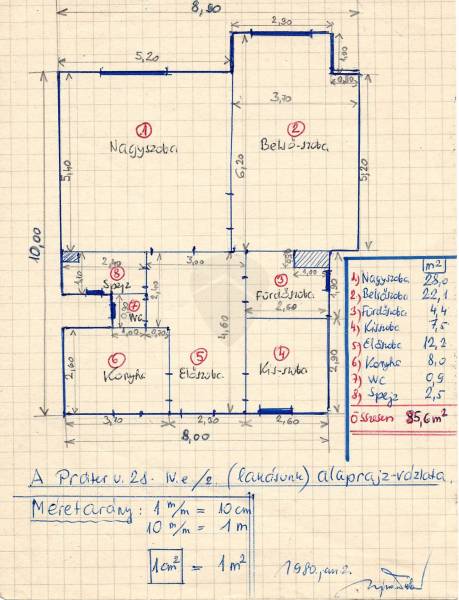 8,90
2,30
5,20
1,00
0,80
3,70
1
Nagyszoba
2
Belső-szoba
5,40
6,20
5,20
10,00
2,40
3,00
8
Spejz
7
WC
3
Fürdőszoba
1,00
1,90
2,60
4,60
1,00
0,70
6
Konyha
5
Előszoba
4
Kis-szoba
2,60
2,90
3,20
2,30
2,60
8,00
m²
1) Nagyszoba 28,0
2) Belsőszoba 22,1
3) Fürdőszoba 4,4
4) Kisszoba 7,5
5) Előszoba 12,2
6) Konyha 8,0
7) WC 0,9
8) Spejz 2,5
Összesen 85,6 m²
A Práter u. 28. IV.e/2. (lakásunk) alaprajz-vázlata.
Méretarány: 1 m/m = 10 cm
10 m/m = 1 m
1 cm² = 1 m²
1980. jan 2.